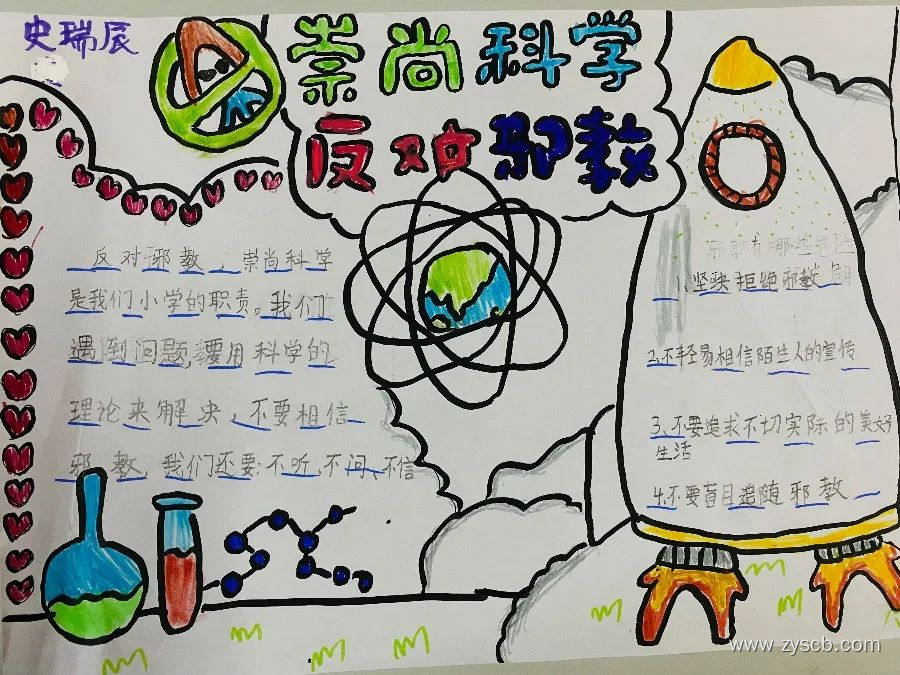 史瑞辰
崇尚科学
反对邪教
反对邪教，崇尚科学
是我们小学的职责。我们
遇倒问题，要用科学的
理论来解决，不要相信
邪教，我们还要：不听、不问、不信
邪教有哪些
1、坚决拒绝邪教
2、不轻易相信陌生人的宣传
3、不要追求不切实际的美好
生活
4、不要盲目追随邪教
www.zyscb.com